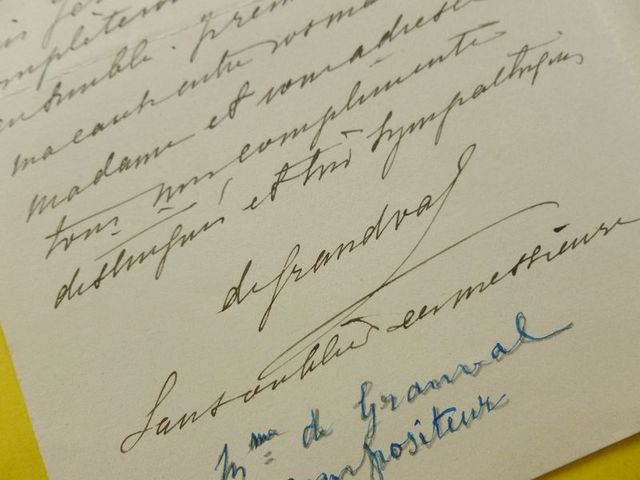 complèterons
ensemble.
ma carte entre vos mains
Madame et vous adresse
tous mes compliments
distingués et très sympathiques
de Grandval
Sans oublier ces messieurs
Mme de Granval
compositeur